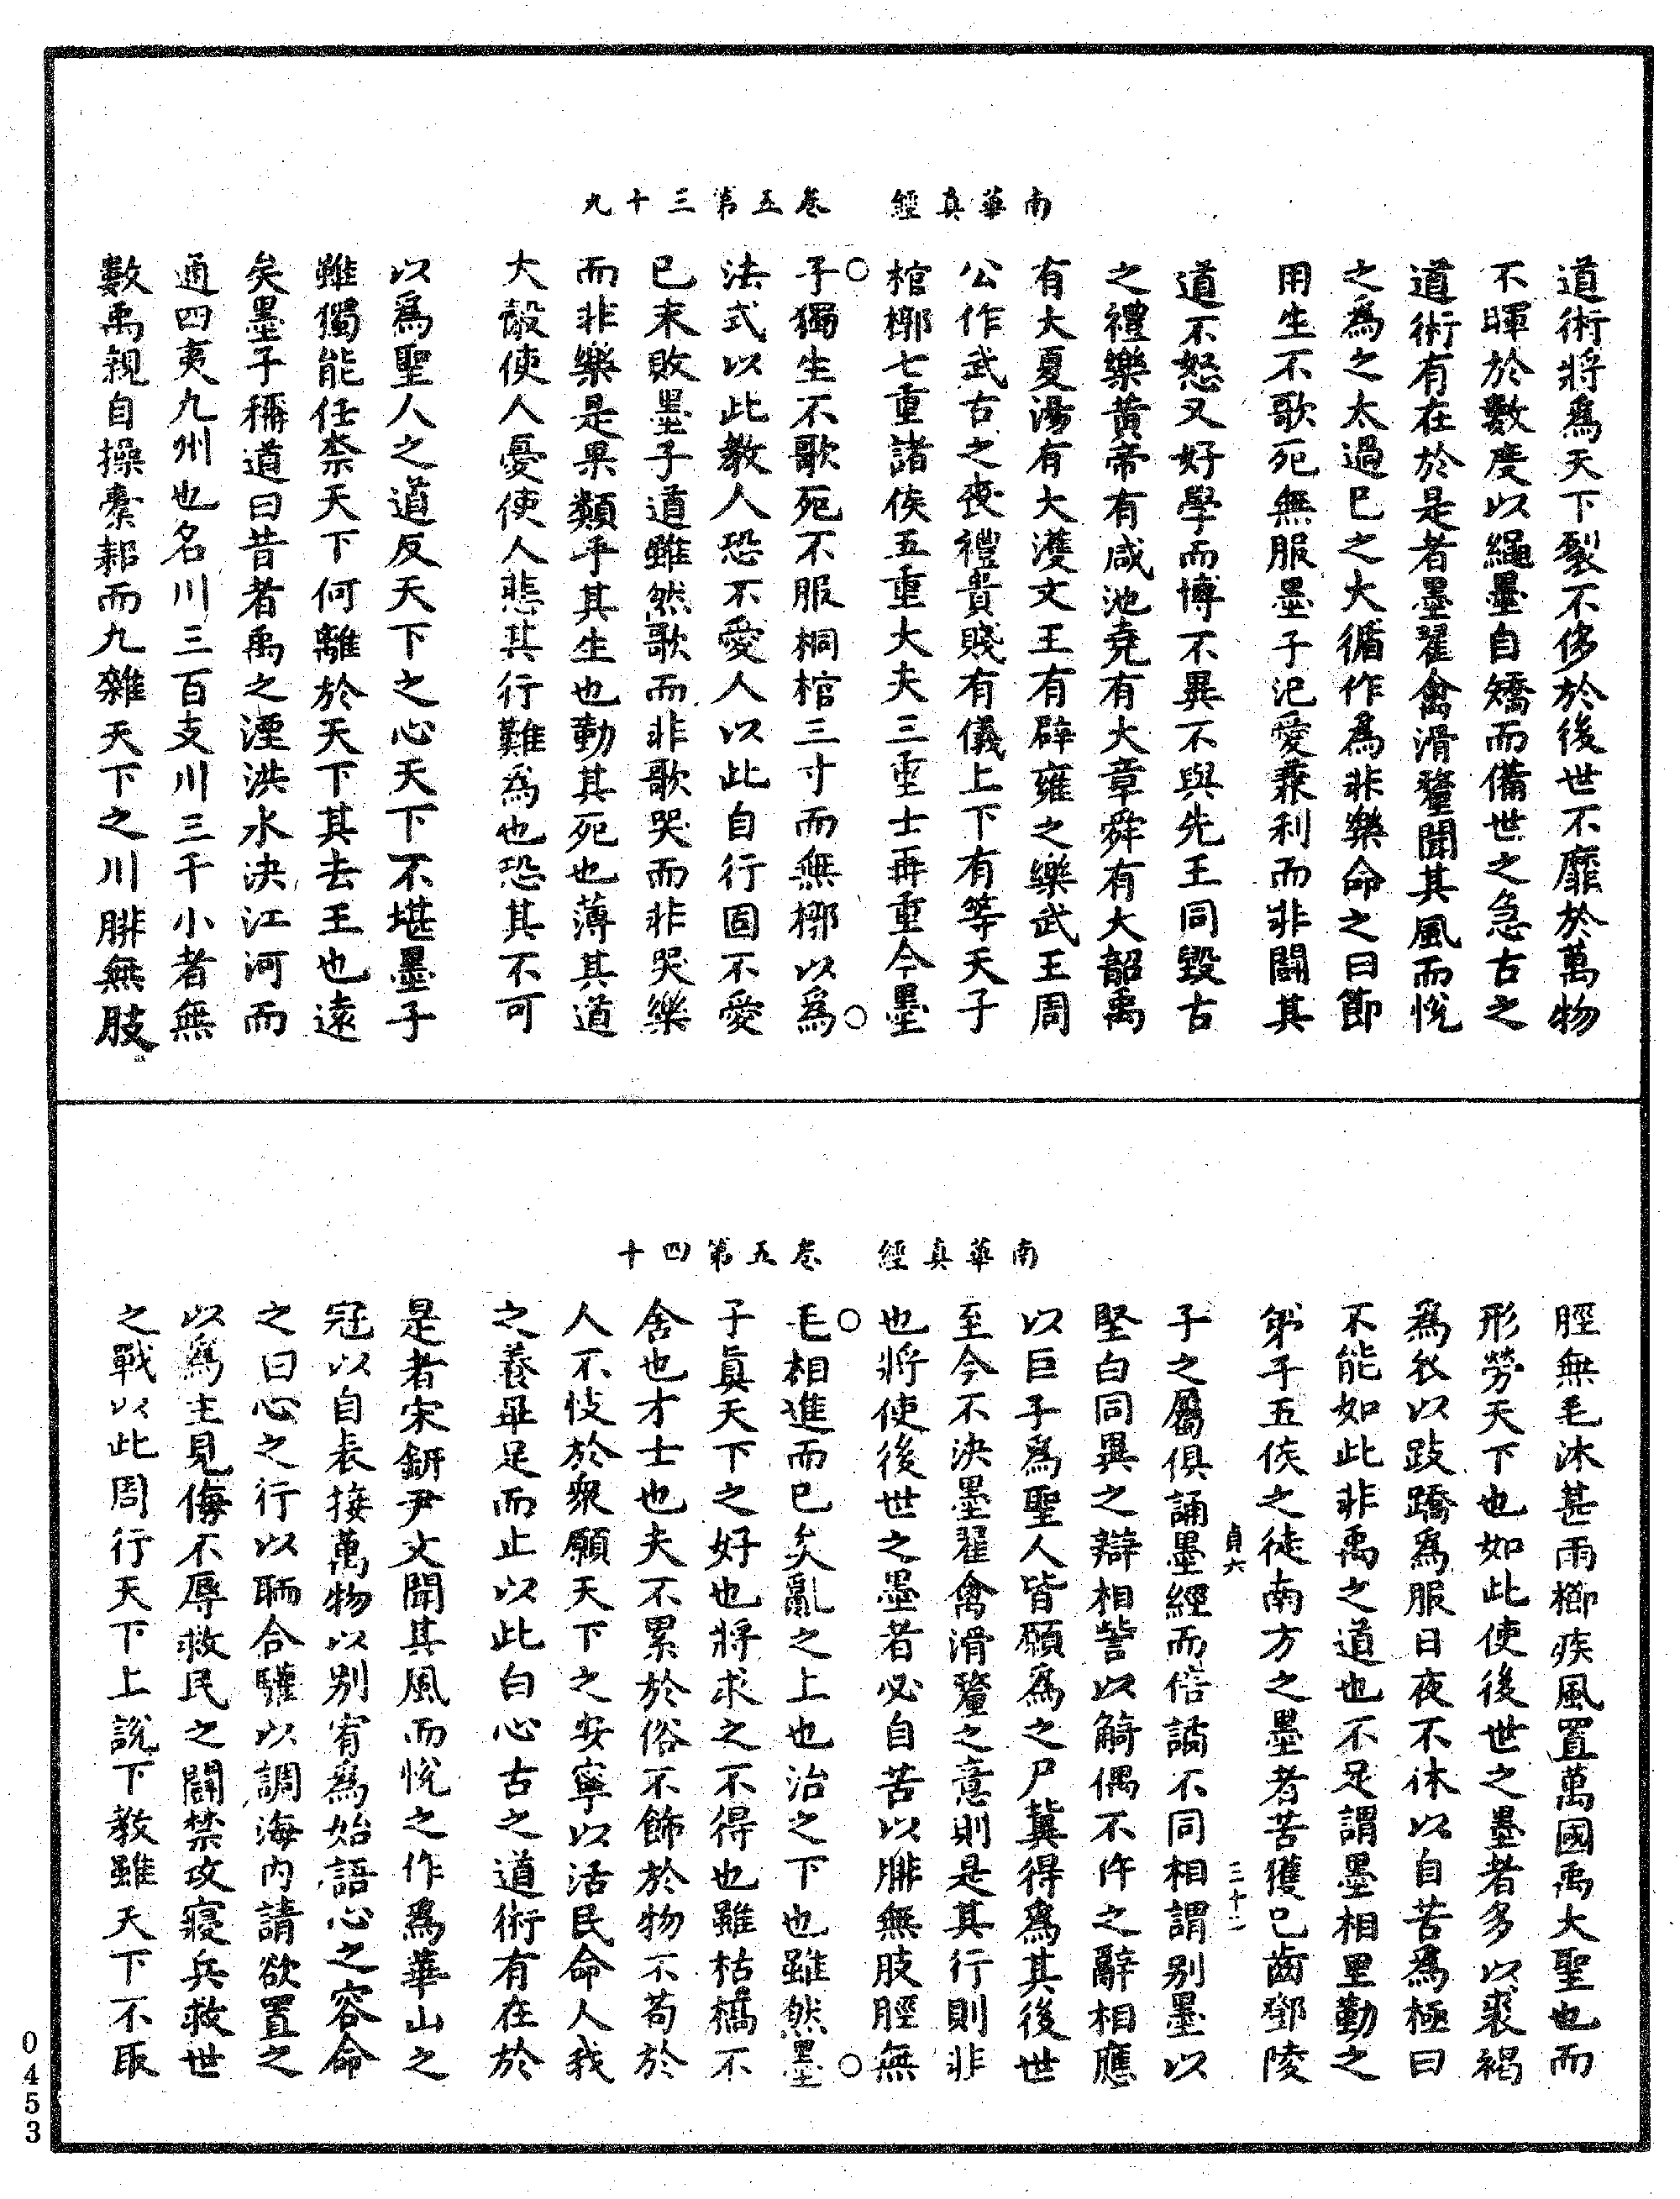 南華真經　卷五第三十九
道術將爲天下裂不侈於後世不靡於萬物
不暉於數度以繩墨自矯而備世之急古之
道術有在於是者墨翟禽滑釐聞其風而悅
之爲之太過已之大循作爲非樂命之曰節
用生不歌死無服墨子汜愛兼利而非鬭其
道不怒又好學而博不異不與先王同毀古
之禮樂黃帝有咸池堯有大章舜有大韶禹
有大夏湯有大濩文王有辟雍之樂武王周
公作武古之喪禮貴賤有儀上下有等天子
棺槨七重諸侯五重大夫三重士再重今墨
子獨生不歌死不服桐棺三寸而無槨以爲
法式以此教人恐不愛人以此自行固不愛
已末敗墨子道雖然歌而非歌哭而非哭樂
而非樂是果類乎其生也勤其死也薄其道
大觳使人憂使人悲其行難爲也恐其不可
以爲聖人之道反天下之心天下不堪墨子
雖獨能任柰天下何離於天下其去王也遠
矣墨子稱道曰昔者禹之湮洪水決江河而
通四夷九州也名川三百支川三千小者無
數禹親自操橐耜而九雜天下之川腓無胈
南華真經　卷五第四十
脛無毛沐甚雨櫛疾風置萬國禹大聖也而
形勞天下也如此使後世之墨者多以裘褐
爲衣以跂蹻爲服日夜不休以自苦爲極曰
不能如此非禹之道也不足謂墨相里勤之
弟子五侯之徒南方之墨者苦獲已齒鄧陵
貞六　三十二
子之屬俱誦墨經而倍譎不同相謂別墨以
堅白同異之辯相訾以觭偶不仵之辭相應
以巨子爲聖人皆願爲之尸冀得爲其後世
至今不決墨翟禽滑釐之意則是其行則非
也將使後世之墨者必自苦以腓無胈脛無
毛相進而已矣亂之上也治之下也雖然墨
子真天下之好也將求之不得也雖枯槁不
舍也才士也夫不累於俗不飾於物不苟於
人不忮於衆願天下之安寧以活民命人我
之養畢足而止以此白心古之道術有在於
是者宋鈃尹文聞其風而悅之作爲華山之
冠以自表接萬物以別宥爲始語心之容命
之曰心之行以聏合驩以調海內請欲置之
以爲主見侮不辱救民之鬭禁攻寢兵救世
之戰以此周行天下上說下教雖天下不取
0453